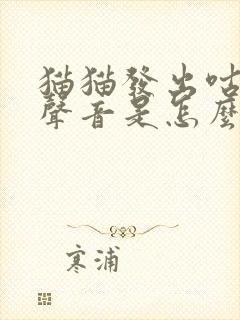 猫猫發出咕
聲音是怎麼
寒浦